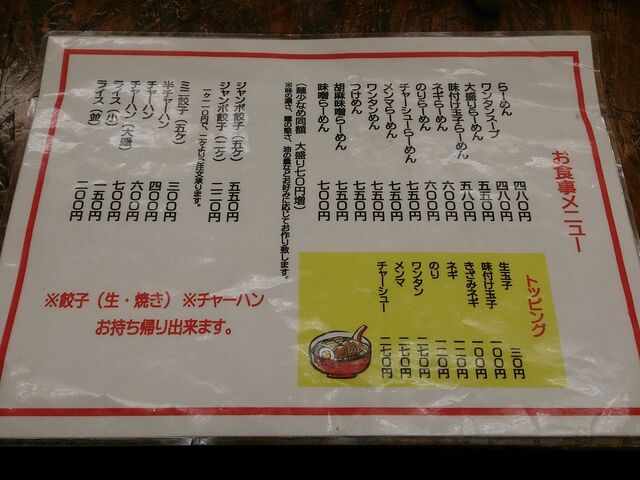 お食事メニュー
らーめん 四八〇円
ワンタンスープ 四八〇円
大盛りらーめん 五五〇円
味付け玉子らーめん 五八〇円
ネギらーめん 六〇〇円
のりらーめん 六〇〇円
チャーシューらーめん 七五〇円
メンマらーめん 七五〇円
ワンタンめん 七五〇円
つけめん 七五〇円
胡麻味噌らーめん 七五〇円
味噌らーめん 七〇〇円
（麺少なめ同額 大盛り七〇円増）
※味の濃さ、麺の堅さ、油の量などお好みに応じてお作り致します。
ジャンボ餃子（五ケ） 五五〇円
ジャンボ餃子（二ケ） 二二〇円
一ケ一一〇円で、二ケよりご注文承ります。
ミニ餃子（五ケ） 三〇〇円
半チャーハン 四〇〇円
チャーハン 六〇〇円
チャーハン（大盛） 七〇〇円
ライス（小） 一五〇円
ライス（並） 二〇〇円
トッピング
生玉子 三〇円
味付け玉子 一〇〇円
きざみネギ 一〇〇円
ネギ 一二〇円
のり 一二〇円
ワンタン 二七〇円
メンマ 二七〇円
チャーシュー 二七〇円
※餃子（生・焼き）※チャーハン
お持ち帰り出来ます。